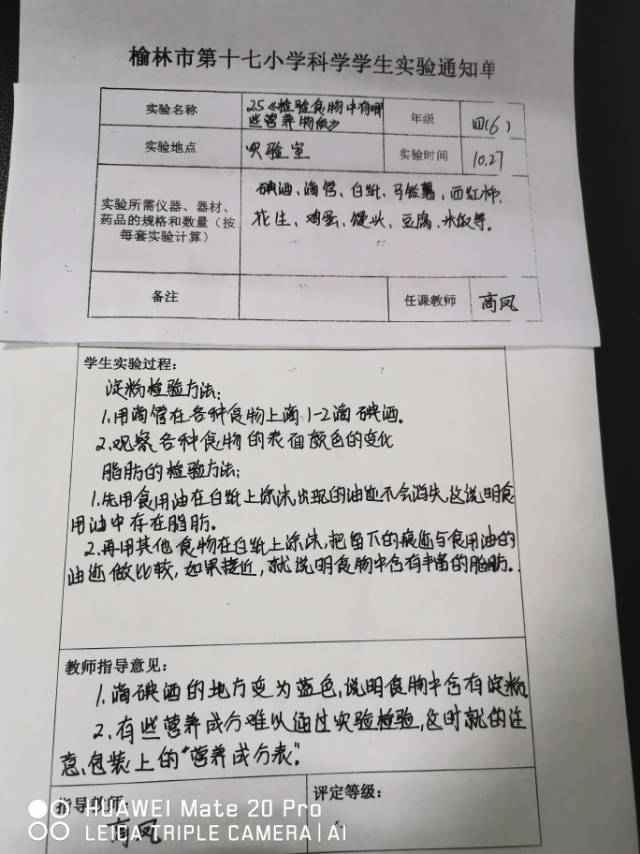 榆林市第十七小学科学学生实验通知单
实验名称
25《检验食物中有哪
些营养物质》
年级
四(6)
实验地点
实验室
实验时间
10.27
实验所需仪器、器材、
药品的规格和数量（按
每套实验计算）
碘酒、滴管、白纸、马铃薯、西红柿、
花生、鸡蛋、馒头、豆腐、米饭等。
备注
任课教师
高凤
学生实验过程：
淀粉检验方法：
1.用滴管在各种食物上滴1-2滴碘酒。
2.观察各种食物的表面颜色的变化
脂肪的检验方法：
1.先用食用油在白纸上涂沫,出现的油迹不会消失,这说明食
用油中存在脂肪。
2.再用其他食物在白纸上涂沫,把留下的痕迹与食用油的
油迹做比较,如果接近,就说明食物中含有丰富的脂肪.
教师指导意见：
1.滴碘酒的地方变为蓝色,说明食物中含有淀粉.
2.有些营养成分难以通过实验检验,这时就的注
意,包装上的“营养成分表”.
指导教师：
高凤
评定等级：
HUAWEI Mate 20 Pro
LEICA TRIPLE CAMERA | AI